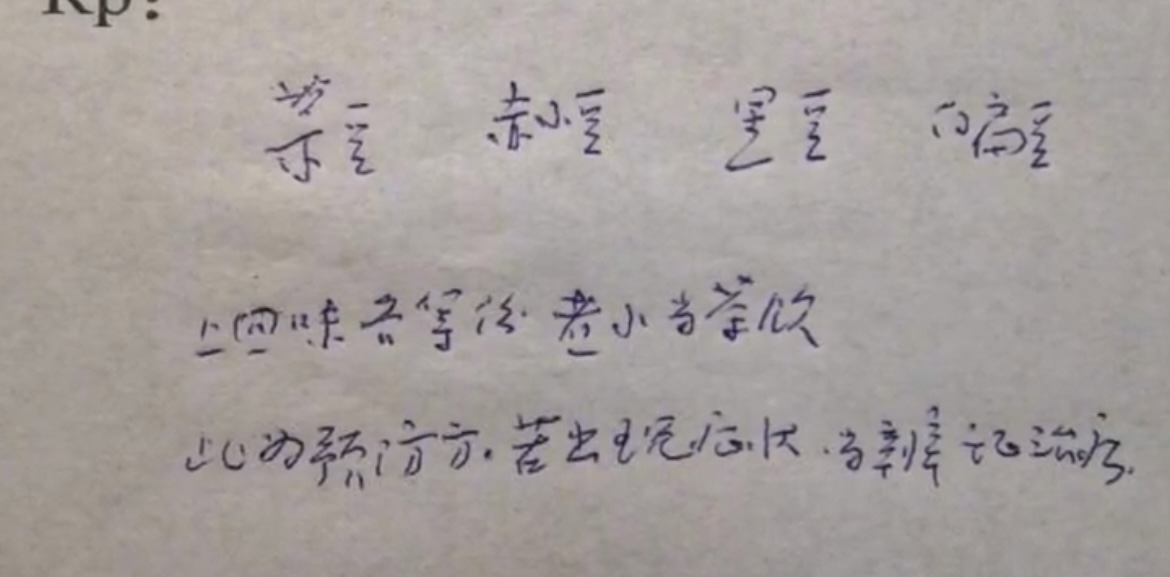 Rp:
赤小豆 黑豆 白扁豆
上四味各等份 煮水当茶饮
此为预防方。若出现症状，当辨证治疗。